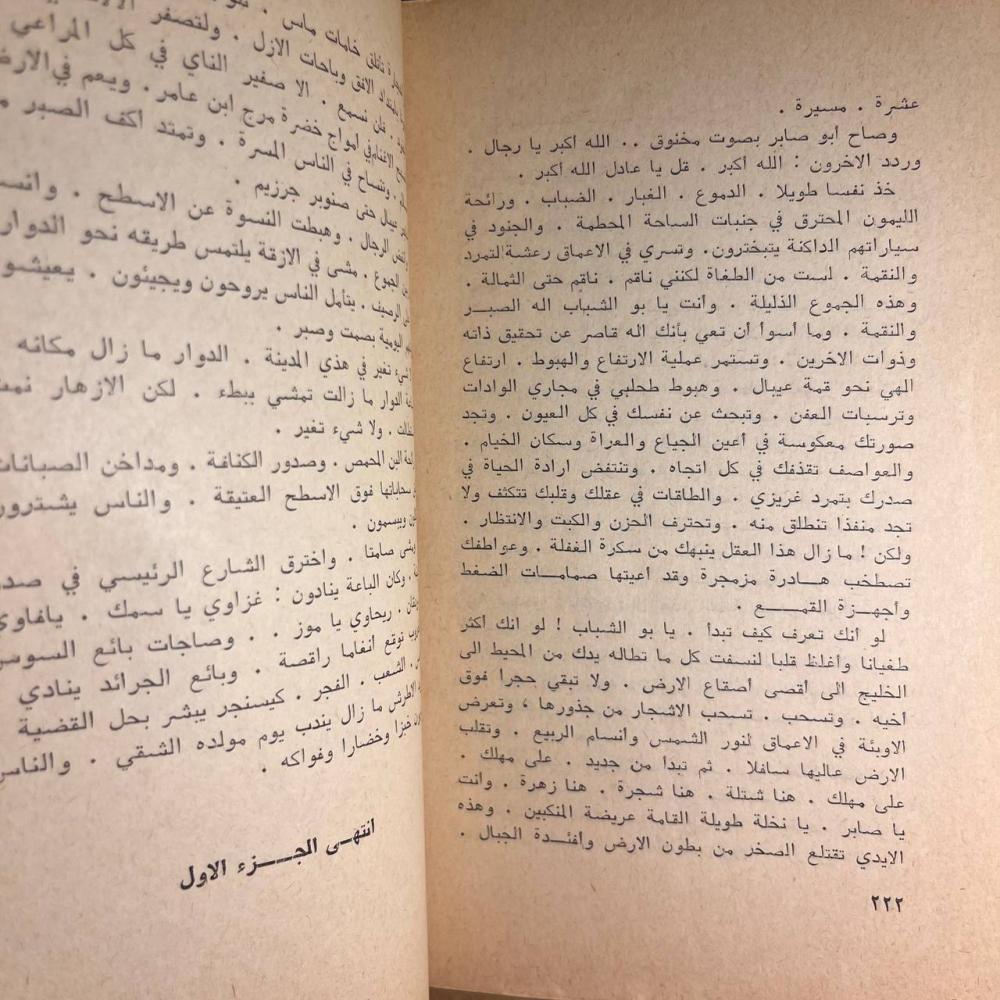 عشرة . مسيرة .
وصاح ابو صابر بصوت مخنوق .. الله اكبر يا رجال .
وردد الاخرون : الله اكبر . قل يا عادل الله اكبر .
خذ نفسا طويلا . الدموع . الغبار . الضباب . ورائحة
الليمون المحترق في جنبات الساحة المحطمة . والجنود في
سياراتهم الداكنة يتبخترون. وتسري في الاعماق رعشة التمرد
والنقمة . لست من الطغاة لكنني ناقم . ناقم حتى الثمالة .
وهذه الجموع الذليلة . وانت يا بو الشباب اله الصبر
والنقمة . وما أسوأ أن تعي بأنك اله قاصر عن تحقيق ذاته
وذوات الاخرين . وتستمر عملية الارتفاع والهبوط . ارتفاع
الهي نحو قمة عيبال . وهبوط طحلبي في مجاري الوادات
وترسبات العفن . وتبحث عن نفسك في كل العيون . وتجد
صورتك معكوسة في أعين الجياع والعراة وسكان الخيام .
والعواصف تقذفك في كل اتجاه . وتنتفض ارادة الحياة في
صدرك بتمرد غريزي . والطاقات في عقلك وقلبك تتكثف ولا
تجد منفذا تنطلق منه . وتحترف الحزن والكبت والانتظار .
ولكن ! ما زال هذا العقل ينبهك من سكرة الغفلة . وعواطفك
تصطخب هادرة مزمجرة وقد اعيتها صمامات الضغط
واجهزة القمع .
لو أنك تعرف كيف تبدأ . يا بو الشباب ! لو انك أكثر
طغيانا وأغلظ قلبا لنسفت كل ما تطاله يدك من المحيط الى
الخليج الى أقصى أصقاع الارض . ولا تبقي حجرا فوق
أخيه . وتسحب . تسحب الاشجار من جذورها ، وتعرض
الاوبئة في الاعماق لنور الشمس وأنسام الربيع . وتقلب
الارض عاليها سافلا . ثم تبدأ من جديد . على مهلك .
على مهلك . هنا شتلة . هنا شجرة . هنا زهرة . وانت
يا صابر . يا نخلة طويلة القامة عريضة المنكبين . وهذه
الايدي تقتلع الصخر من بطون الارض وأفئدة الجبال .
٢٢٢
خامات ماس .
الافق وباحات الازل . ولتصفر
. فلن نسمع . الا صفير الناي في كل المراعي
في امواج خضرة مرج ابن عامر. ويعم في
في الناس المسرة . وتمتد اكف الصبر
عيبال حتى صنوبر جرزيم .
الرجال . وهبطت النسوة عن الاسطح .
الجموع . مشى في الازقة يلتمس طريقه نحو الدوار
الرصيف . يتأمل الناس يروحون ويجيئون .
اليومية بصمت وصبر .
شيء تغير في هذي المدينة . الدوار ما زال مكانه
الدوار ما زالت تمشي ببطء . لكن الازهار
. ولا شيء تغير .
البن المحمص . وصدور الكنافة . ومداخن الصبانات
فوق الاسطح العتيقة . والناس يشترون
ويبسمون .
صامتا . واخترق الشارع الرئيسي في
. وكان الباعة ينادون : غزاوي يا سمك .
. ريحاوي يا موز . . وصاجات بائع السوس
توقع انغاما راقصة . وبائع الجرائد ينادي
. الشعب . الفجر . كيسنجر يبشر بحل القضية
الاطرش ما زال يندب يوم مولده الشقي . والناس
خبزا وخضارا وفواكه .
انتهى الجزء الاول